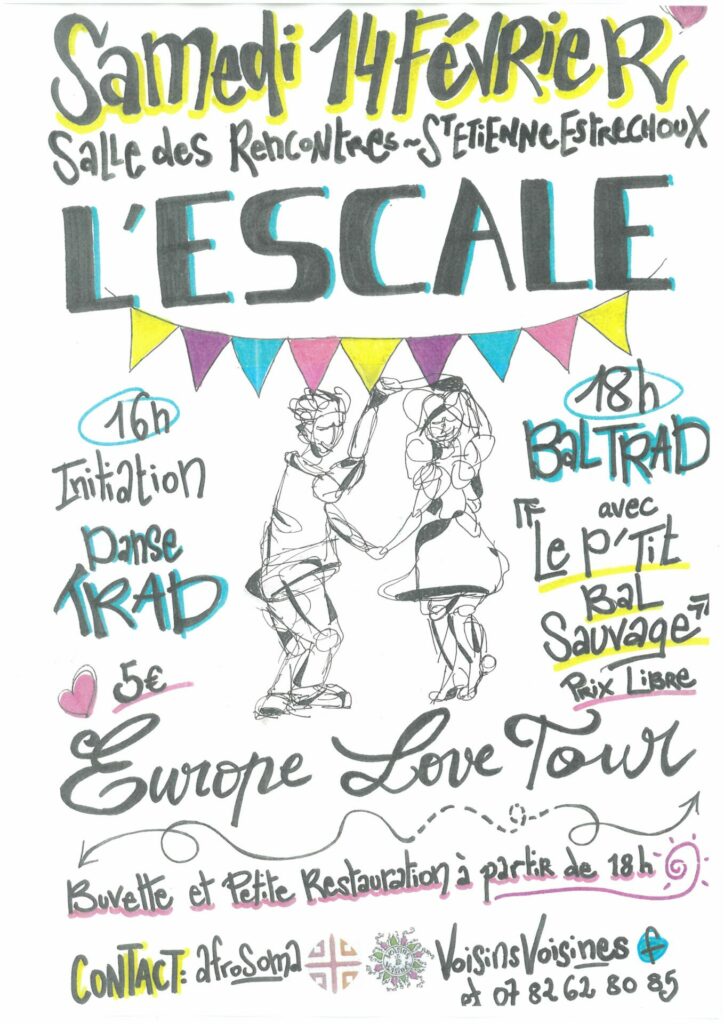 Samedi 14 Février
Salle des Rencontres ~ St Etienne Estrechoux
L'ESCALE
16h
Initiation
Danse
TRAD
5€
18h
Bal TRAD
avec
Le P'Tit
Bal
Sauvage
Prix Libre
Europe Love Tour
Buvette et Petite Restauration à partir de 18h
CONTACT: afroSoma VoisinsVoisines
et 07 82 62 80 85